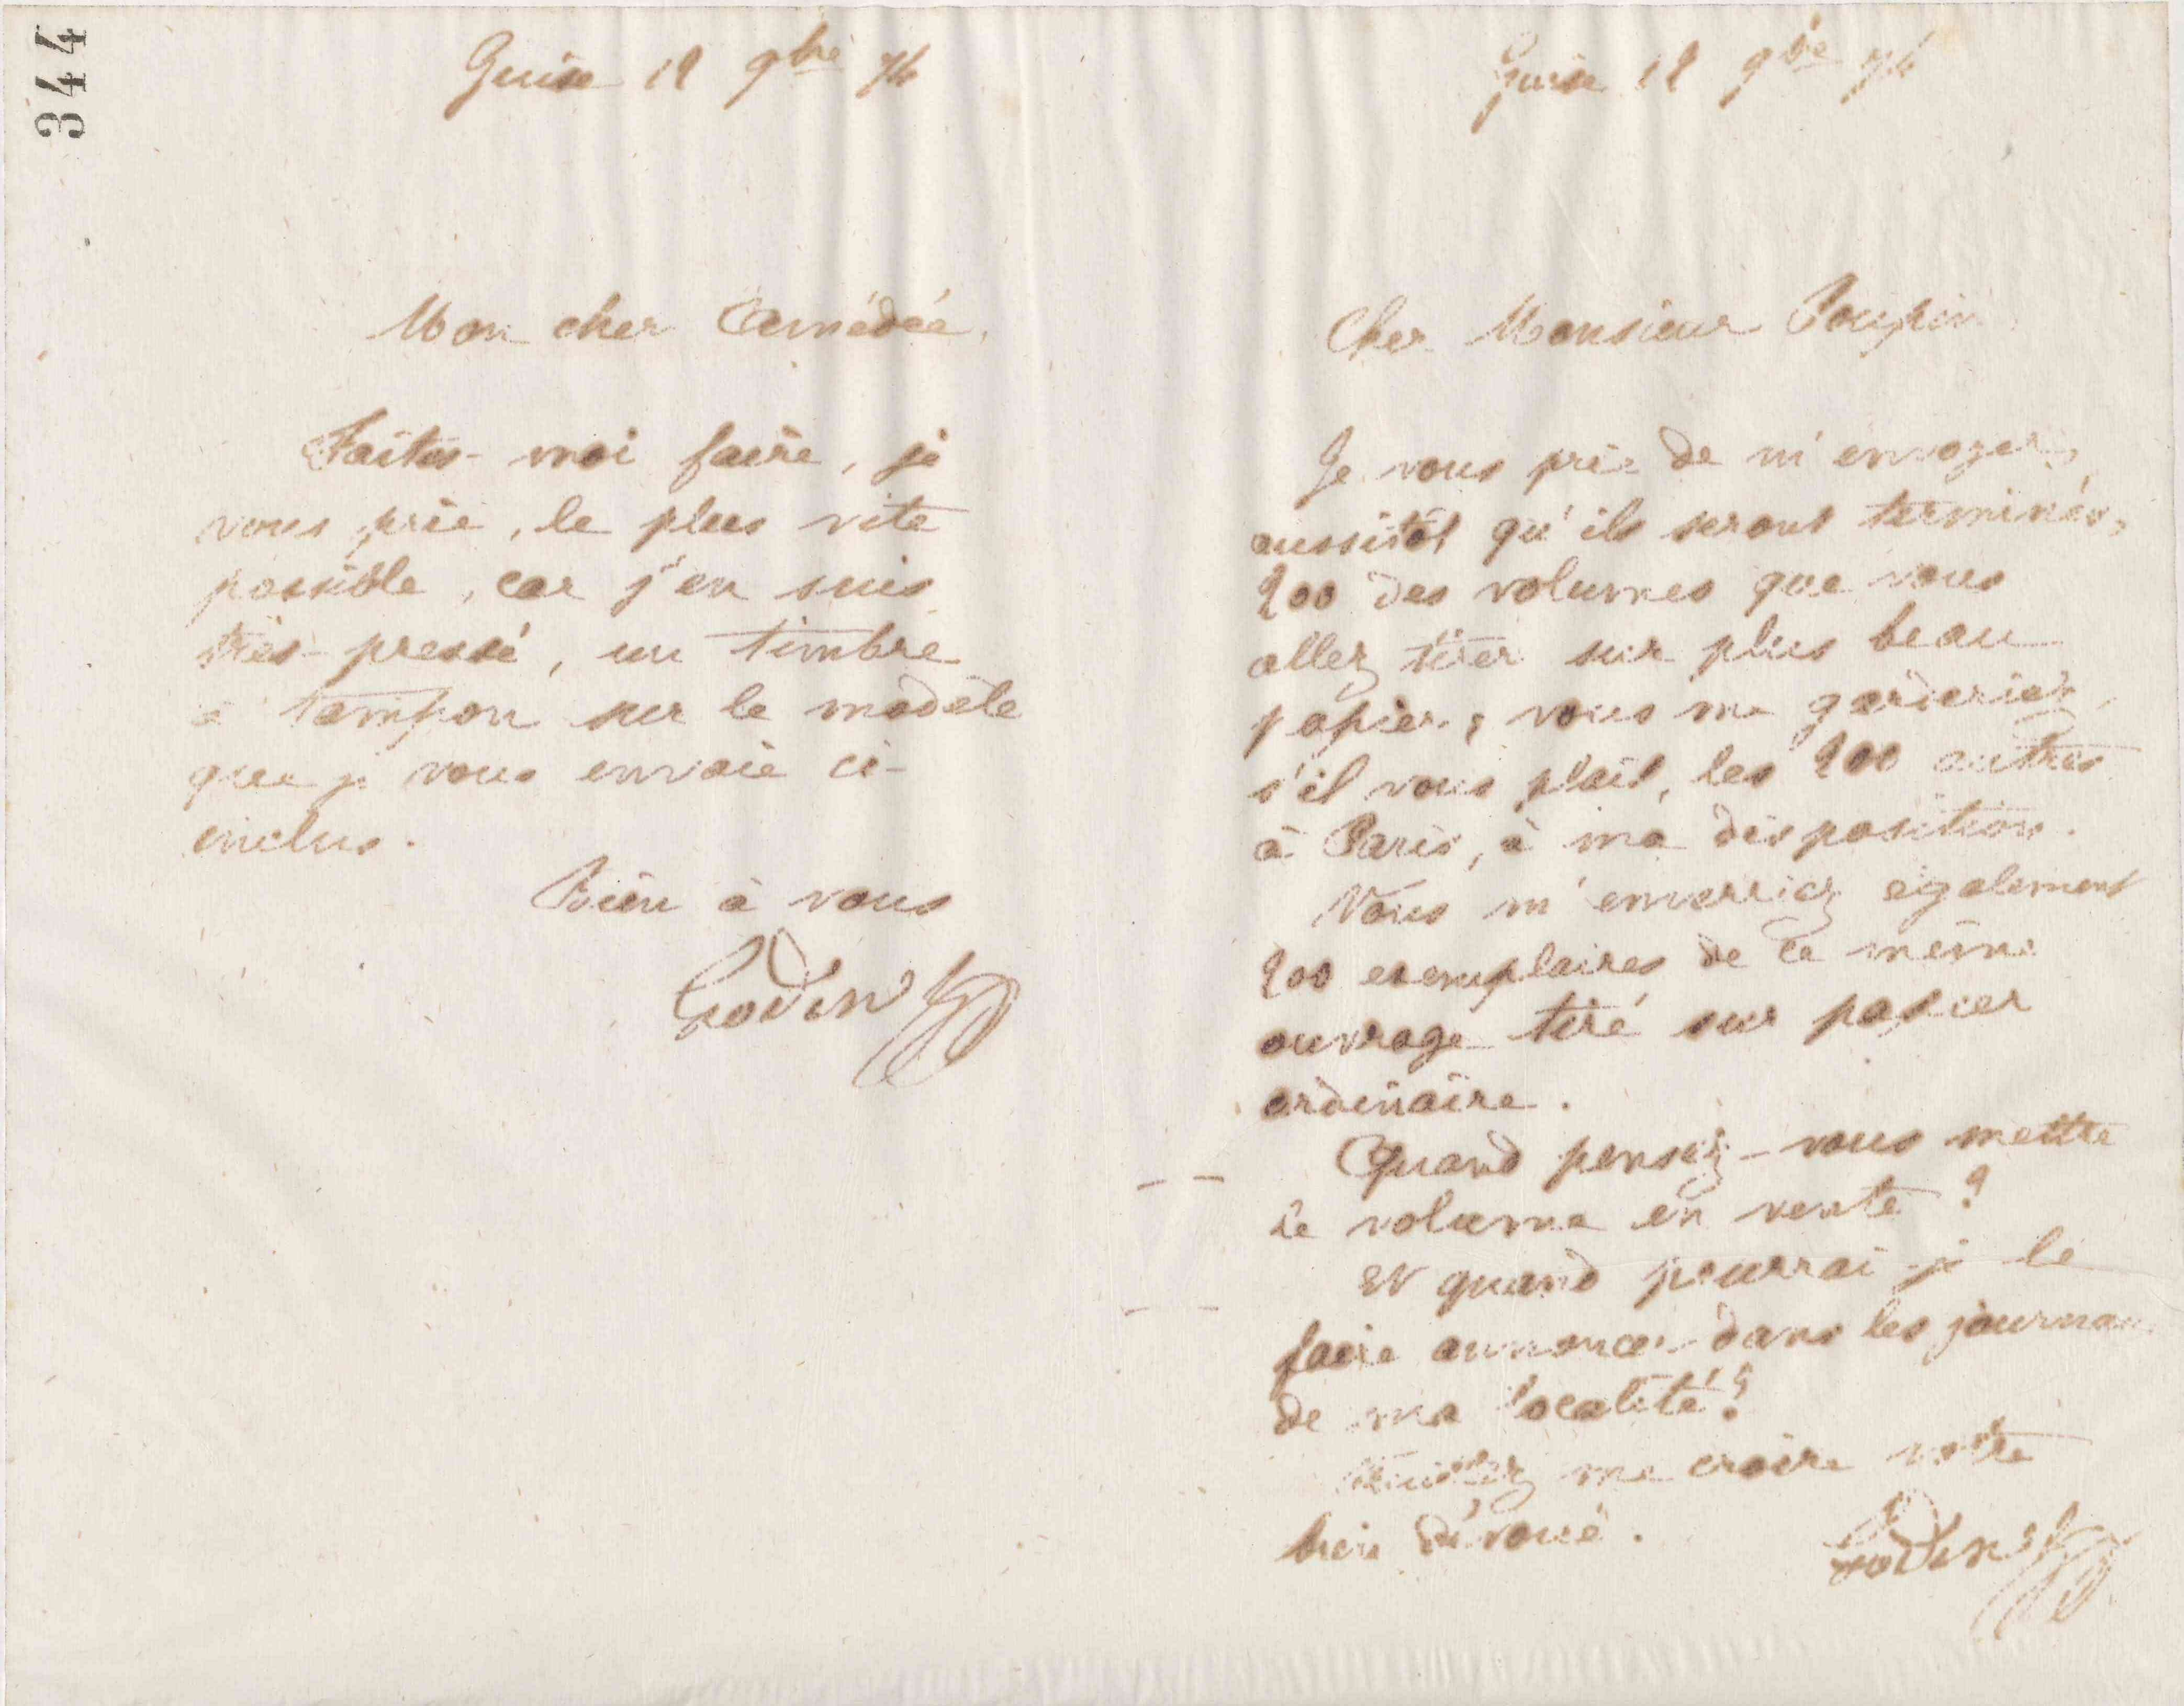 344
Guise 12 9bre 74
Mon cher Amédée,
Faites-moi faire, je
vous prie, le plus vite
possible, car j'en suis
très-pressé, un timbre
à tampon sur le modèle
que je vous envoie ci-
inclus.
Bien à vous
Godin
Guise 12 9bre 74
Cher Monsieur
Je vous prie de m'envoyer,
aussitôt qu'ils seront terminés,
200 des volumes que vous
allez tirer sur plus beau
papier; vous me garderiez,
s'il vous plait, les 200 autres
à Paris, à ma disposition.
Vous m'enverriez également
200 exemplaires de ce même
ouvrage tiré sur papier
ordinaire.
Quand pensez-vous mettre
ce volume en vente?
Et quand pourrai-je le
faire annoncer dans les journaux
de ma localité?
Veuillez me croire votre
bien dévoué.
Godin